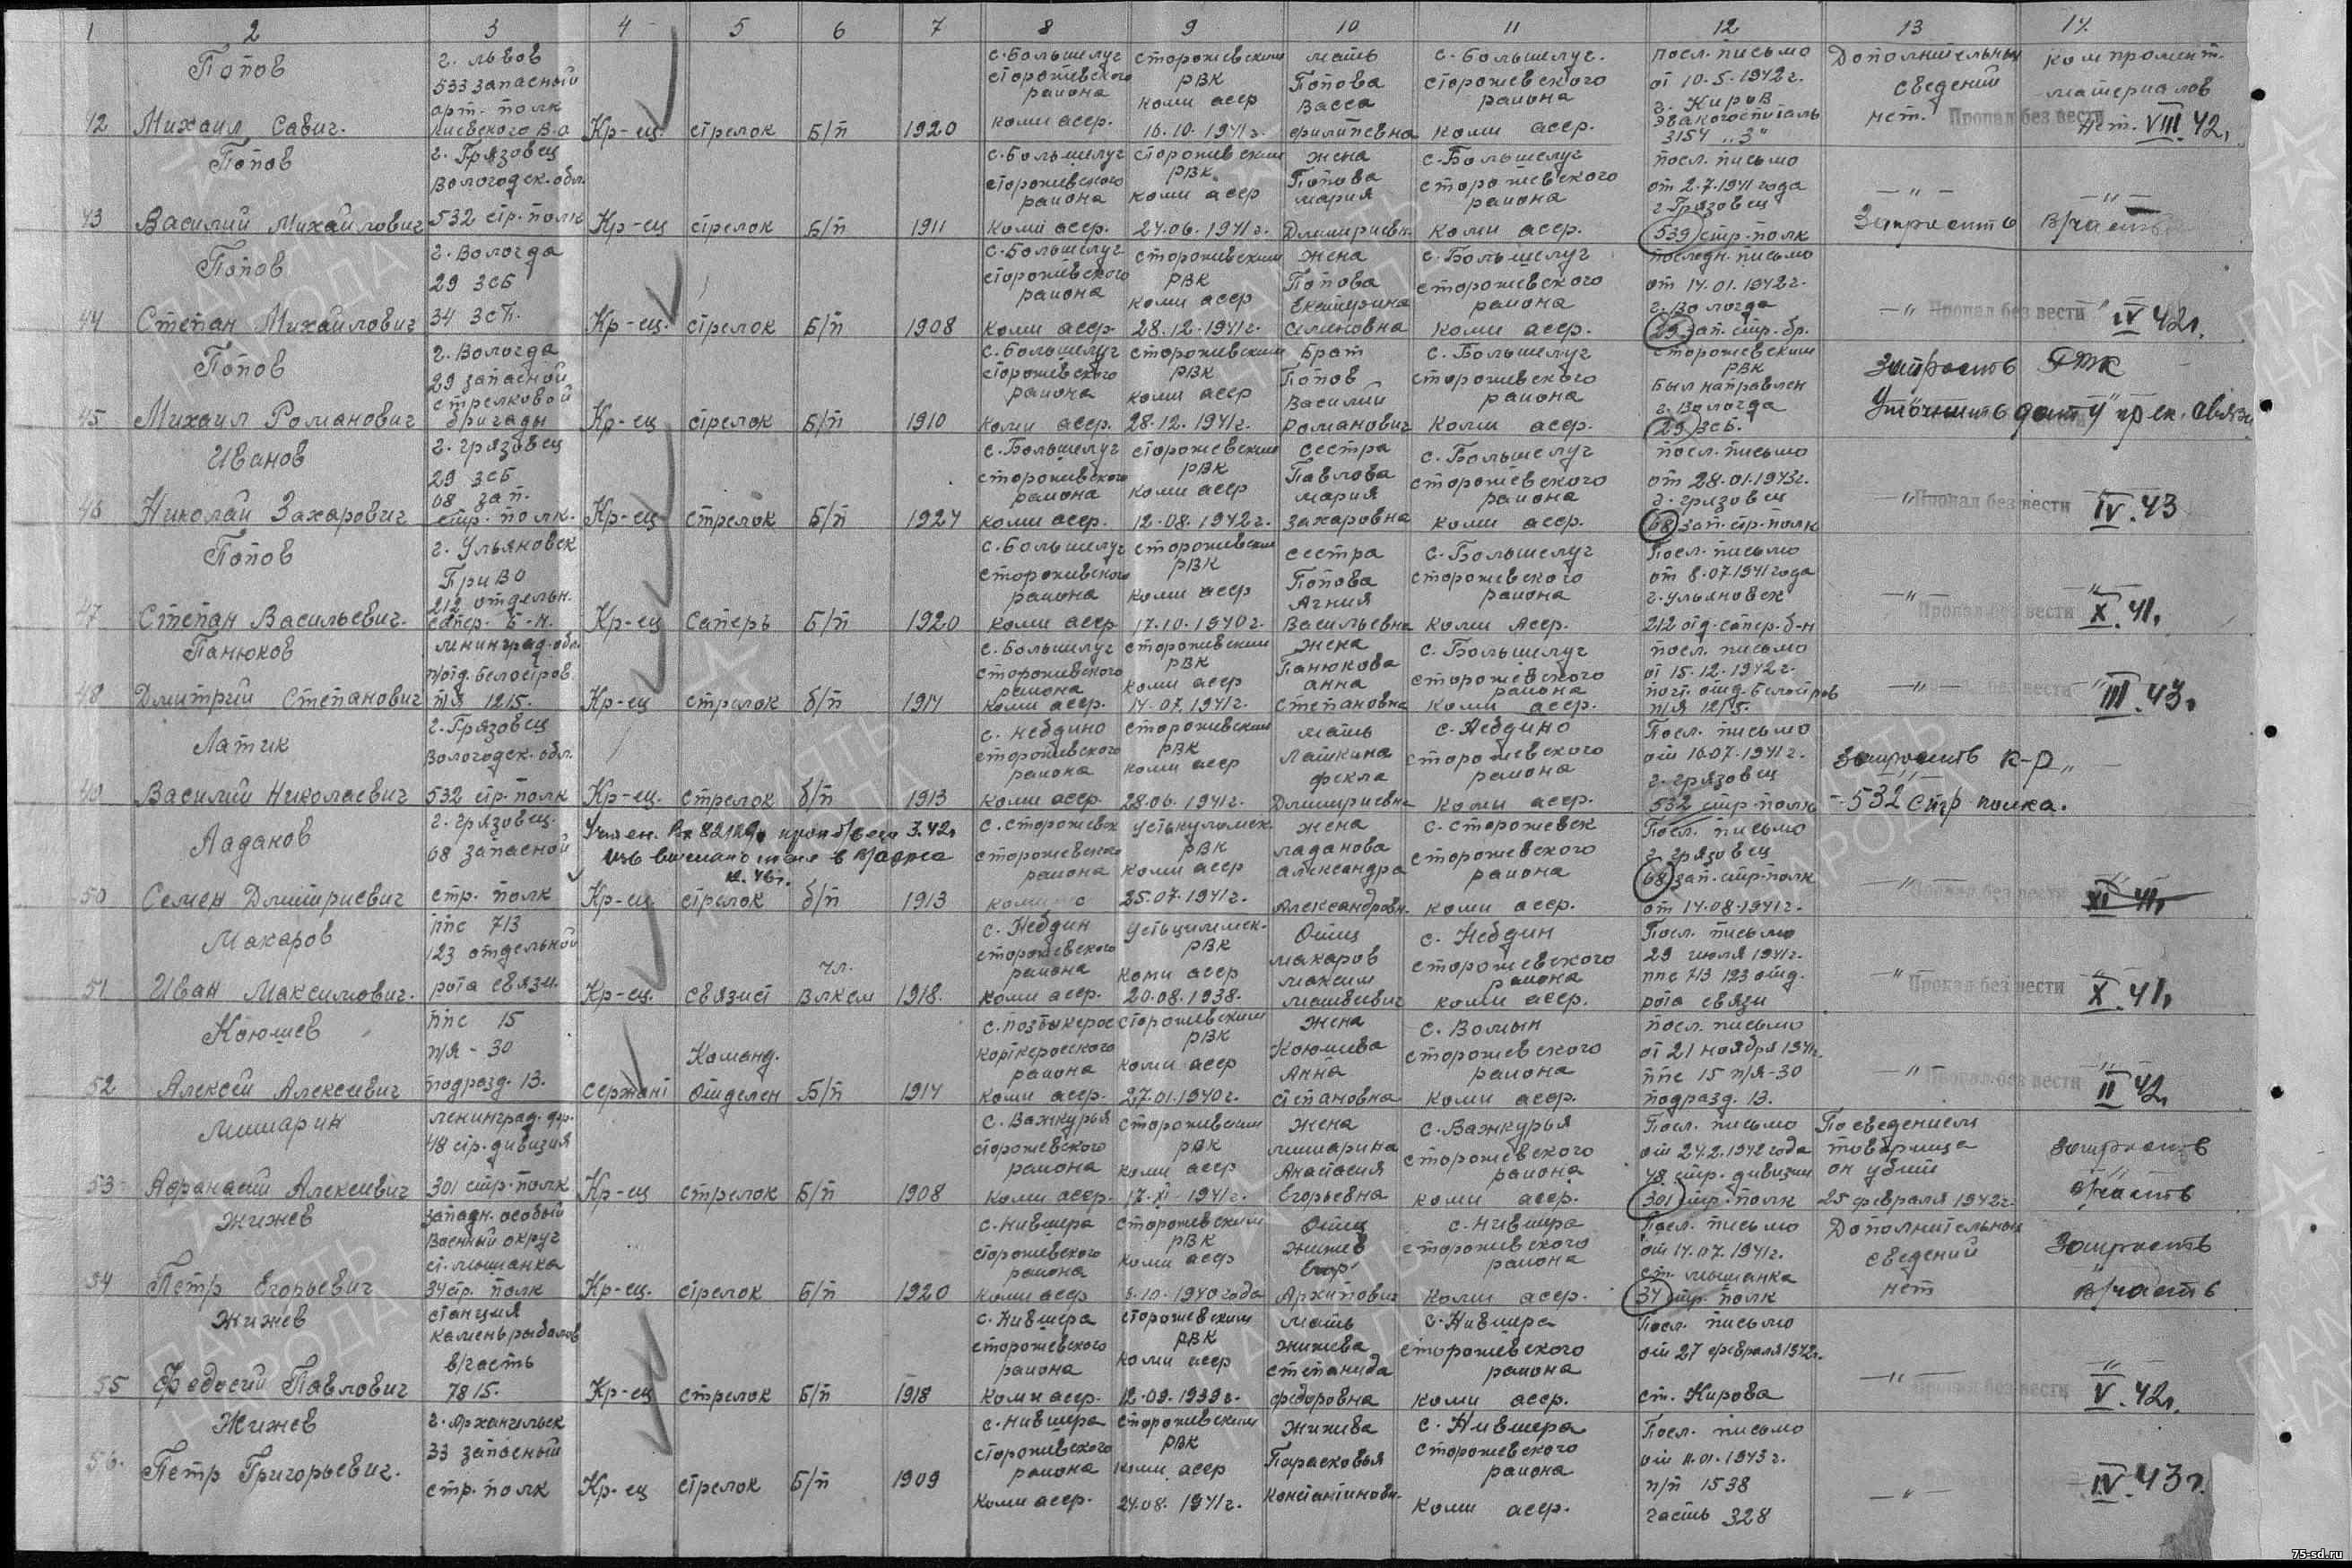 1 2 3 4 5 6 7 8 9 10 11 12 13 14
42 Попов
Михаил Савич.
г. Львов
533 запасный
арт. полк
Киевского В-о
Кр-ец. стрелок Б/п 1920
с. Большелуг
сторожевского
района
коми асср.
сторожевским
РВК
коми асср
16.10.1941г.
мать
Попова
Васса
филипевна
с. Большелуг.
сторожевского
района
коми асср.
посл. письмо
от 10.5.1942г.
г. Киров
эвакогоспиталь
3154 „3"
Дополнительных
сведений
нет.
компромент.
материалов
нет.
Пропал без вести
VIII.42г
43 Попов
Василий Михайлович
г. Грязовец
Вологодск. обл.
532 стр. полк
Кр-ец стрелок Б/п 1911
с. Большелуг
сторожевского
района
коми асср.
сторожевским
РВК
коми асср
24.06.1941г.
жена
Попова
мария
Дмитриевн.
с. Большелуг
сторожевского
района
коми асср.
посл. письмо
от 2.7.1941 года
г. Грязовец
539 стр. полк
— „ —
Запросить в/часть
44 Попов
Степан Михайлович
г. Вологда
29 зсб
34 зсп.
Кр-ец. стрелок Б/п 1908
с. Большелуг
сторожевского
района
коми асср.
сторожевским
РВК
коми асср
28.12.1941г.
жена
Попова
Екатерина
Семеновна
с. Большелуг
сторожевского
района
коми асср.
последн. письмо
от 14.01.1942г.
г. Вологда
29 зап. стр. бр.
— „ —
Пропал без вести
IV 42г.
45 Попов
Михаил Романович
г. Вологда
29 запасной
стрелковой
бригады
Кр-ец стрелок Б/п 1910
с. Большелуг
сторожевского
района
коми асср.
сторожевским
РВК
коми асср
28.12.1941г.
Брат
Попов
Василий
Романович
с. Большелуг
сторожевского
района
коми асср.
сторожевским
РВК
был направлен
г. Вологда
29 зсб.
Запросить
Уточнить дату прек. связи
46 Иванов
Николай Захарович
г. грязовец
29 зсб
68 зап.
стр. полк.
Кр-ец стрелок Б/п 1924
с. Большелуг
сторожевского
района
коми асср.
сторожевским
РВК
коми асср
12.08.1942г.
сестра
Павлова
мария
Захаровна
с. Большелуг
сторожевского
района
коми асср.
посл. письмо
от 28.01.1943г.
г. грязовец
68 зап. стр. полк
Пропал без вести
IV.43
47 Попов
Степан Васильевич.
г. Ульяновск
ПриВО
212 отдельн.
сапер. б-н.
Кр-ец Саперъ Б/п 1920
с. Большелуг
сторожевского
района
коми асср
сторожевским
РВК
коми асср
17.10.1940г.
сестра
Попова
Агния
Васильевна
с. Большелуг
сторожевского
района
коми Асср.
Посл. письмо
от 8.07.1941 года
г. Ульяновск
212 отд. сапер. б-н
— „ —
Пропал без вести
X.41г
48 Панюков
Дмитрий Степанович
ленинград. обл.
п/отд. белостров.
п/я 1215.
Кр-ец стрелок б/п 1914
с. Большелуг
сторожевского
района
коми асср.
сторожевским
РВК
коми асср
14.07.1941г.
жена
Панюкова
анна
степановна
с. Большелуг
сторожевского
района
коми асср.
посл. письмо
от 15.12.1942г.
почт. отд. белостров
п/я 1215.
— „ —
без вести
III.43г
Латик
Василий Николаевич
г. Грязовец
Вологодск. обл.
532 стр. полк
Кр-ец. стрелок б/п 1913
с. небдино
сторожевского
района
коми асср.
сторожевским
РВК
коми асср
28.06.1941г.
мать
Латкина
фекла
Дмитриевна
с. Небдино
сторожевского
района
коми асср.
Посл. письмо
от 16.07.1941г.
г. грязовец
532 стр. полк
Запросить к-р
532 стр полка.
50 Ладанов
Семен Дмитриевич
г. грязовец.
68 запасной
стр. полк
3.42г
Кр-ец. стрелок б/п 1913
с. сторожевск
сторожевского
района
устькуломск.
РВК
коми асср
25.07.1941г.
жена
ладанова
александра
Александровн.
с. сторожевск
сторожевского
района
коми асср.
Посл. письмо
г. грязовец
68 зап. стр. полк
от 14.08.1941г.
— „ —
без вести
XI 41г
51 Макаров
Иван Максимович.
ппс 713
123 отдельной
рота связи.
Кр-ец. связист чл. влксм 1918.
с. Небдин
сторожевского
района
коми асср.
устьцилемск.
РВК
коми асср
20.08.1938.
Отец
макаров
максим
матвеевич
с. Небдин
сторожевского
района
коми асср.
Посл. письмо
29 июля 1941г.
ппс 713 123 отд.
рота связи
Пропал без вести
X.41г
52 Коюшев
Алексей Алексеевич
ппс 15
п/я - 30
подразд. 13.
сержант Команд. Отделен Б/п 1914
с. позтыкерос
корткеросского
района
коми асср.
сторожевским
РВК
коми асср
27.01.1940г.
жена
Коюшева
Анна
степановна
с. Вомын
сторожевского
района
коми асср.
посл. письмо
от 21 ноября 1941г.
ппс 15 п/я-30
подразд. 13.
— „ —
Пропал без вести
II 42г
53 Мишарин
Афанасий Алексеевич
ленинград. фр.
48 стр. дивизия
301 стр. полк
Кр-ец стрелок Б/п 1908
с. Важкурья
сторожевского
района
коми асср.
сторожевским
РВК
коми асср
17.XI-1941г.
жена
мишарина
Анастасия
Егорьевна
с. Важкурья
сторожевского
района
коми асср.
Посл. письмо
от 24.2.1942 года
48 стр. дивизии
301 стр. полк
По сведением
товарища
он убит
25 февраля 1942г.
Запросить
в/часть
54 Жижев
Петр Егорьевич
Западн. особый
Военный округ
ст. мышанка
34 стр. полк
Кр-ец. стрелок Б/п 1920
с. Нившера
сторожевского
района
коми асср
сторожевским
РВК
коми асср
6.10.1940 года
Отец
жижев
Егор
Архипович
с. нившера
сторожевского
района
коми асср.
Посл. письмо
от 14.07.1941г.
ст. мышанка
34 стр. полк
Дополнительных
сведений
нет
Запросить
в/часть
55 Жижев
Федосий Павлович
станция
камень рыболов
в/часть
7815.
Кр-ец стрелок Б/п 1918
с. Нившера
сторожевского
района
коми асср.
сторожевским
РВК
коми асср
12.09.1939г.
мать
жижева
степанида
федоровна
с. Нившера
сторожевского
района
коми асср.
Посл. письмо
от 27 февраля 1942г.
ст. Кирова
— „ —
Пропал без вести
V.42г.
56. Жижев
Петр Григорьевич.
г. Архангельск
33 запасный
стр. полк
Кр-ец стрелок Б/п 1909
с. нившера
сторожевского
района
коми асср.
сторожевским
РВК
коми асср
24.08.1941г.
жижева
Парасковья
Константиновн.
с. Нившера
сторожевского
района
коми асср.
Посл. письмо
от 11.01.1943г.
п/п 1538
часть 328
— „ —
IV.43г.
ПАМЯТЬ НАРОДА
75-sd.ru